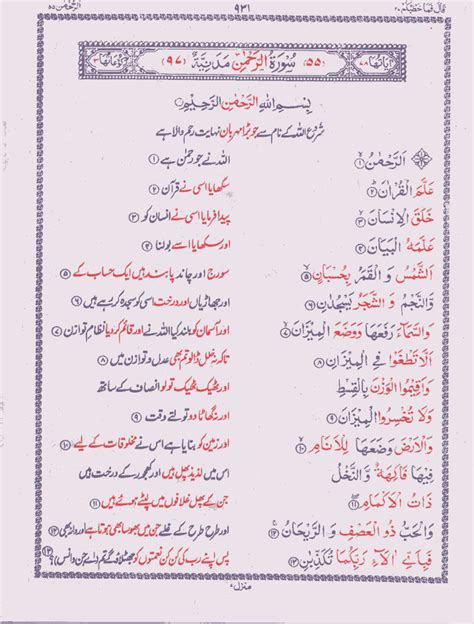 قَالَ فَمَا خَطْبُكُمْ ٢٧ ٩٣١ اَلرَّحْمٰن ٥٥
اٰيَاتُهَا ٧٨ (٥٥) سُوْرَةُ الرَّحْمٰنِ مَدَنِيَّةٌ (٩٧) رُكُوْعَاتُهَا ٣
بِسْمِ اللهِ الرَّحْمٰنِ الرَّحِيْمِ
شروع اللہ کے نام سے جو بڑا مہربان نہایت رحم والا ہے
اَلرَّحْمٰنُ ۙ﴿۱﴾ اللہ نے جو رحمٰن ہے ﴿۱﴾
عَلَّمَ الْقُرْاٰنَ ؕ﴿۲﴾ سکھایا اسی نے قرآن ﴿۲﴾
خَلَقَ الْاِنْسَانَ ۙ﴿۳﴾ پیدا فرمایا اسی نے انسان کو ﴿۳﴾
عَلَّمَهُ الْبَيَانَ ﴿۴﴾ اور سکھایا اسے بولنا ﴿۴﴾
اَلشَّمْسُ وَ الْقَمَرُ بِحُسْبَانٍ ۪﴿۵﴾ سورج اور چاند پابند ہیں ایک حساب کے ﴿۵﴾
وَّالنَّجْمُ وَ الشَّجَرُ يَسْجُدٰنِ ﴿۶﴾ اور جھاڑیاں اور درخت اسی کو سجدہ کر رہے ہیں ﴿۶﴾
وَالسَّمَآءَ رَفَعَهَا وَوَضَعَ الْمِيْزَانَ ۙ﴿۷﴾ اور آسمان کو بلند کیا اللہ نے اور قائم کر دیا نظام توازن ﴿۷﴾
اَلَّا تَطْغَوْا فِي الْمِيْزَانِ ﴿۸﴾ تاکہ نہ خلل ڈالو تم بھی عدل و توازن میں ﴿۸﴾
وَاَقِيْمُوا الْوَزْنَ بِالْقِسْطِ اور ٹھیک ٹھیک تولو انصاف کے ساتھ
وَلَا تُخْسِرُوا الْمِيْزَانَ ﴿۹﴾ اور نہ گھاٹا دو تولتے وقت ﴿۹﴾
وَالْاَرْضَ وَضَعَهَا لِلْاَنَامِ ۙ﴿۱۰﴾ اور زمین کو بنایا ہے اس نے مخلوقات کے لیے ﴿۱۰﴾
فِيْهَا فَاكِهَةٌ وَّالنَّخْلُ اس میں لذیذ پھل ہیں اور کھجور کے درخت
ذَاتُ الْاَكْمَامِ ۖ﴿۱۱﴾ جن کے پھل غلافوں میں لپٹے ہوئے ہیں ﴿۱۱﴾
وَالْحَبُّ ذُو الْعَصْفِ وَ الرَّيْحَانُ ۚ﴿۱۲﴾ اور طرح طرح کے غلے جن میں بھوسا بھی ہوتا ہے اور دانہ بھی ﴿۱۲﴾
فَبِاَيِّ اٰلَآءِ رَبِّكُمَا تُكَذِّبٰنِ ﴿۱۳﴾ پس اپنے رب کی کن کن نعمتوں کو جھٹلاؤ گے تم (اے جن و انس)؟ ﴿۱۳﴾
منزل ۷